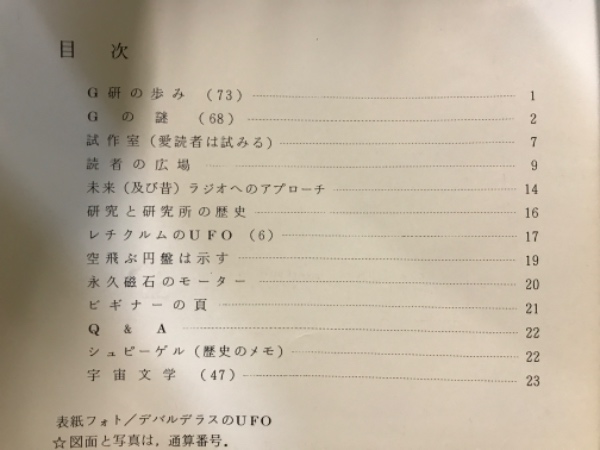 目 次
G研の歩み (73) 1
Gの謎 (68) 2
試作室(愛読者は試みる) 7
読者の広場 9
未来(及び昔)ラジオへのアプローチ 14
研究と研究所の歴史 16
レチクルムのUFO (6) 17
空飛ぶ円盤は示す 19
永久磁石のモーター 20
ビギナーの頁 21
Q & A 22
シュピーゲル(歴史のメモ) 22
宇宙文学 (47) 23
表紙フォト/デバルデラスのUFO
☆図面と写真は,通算番号.